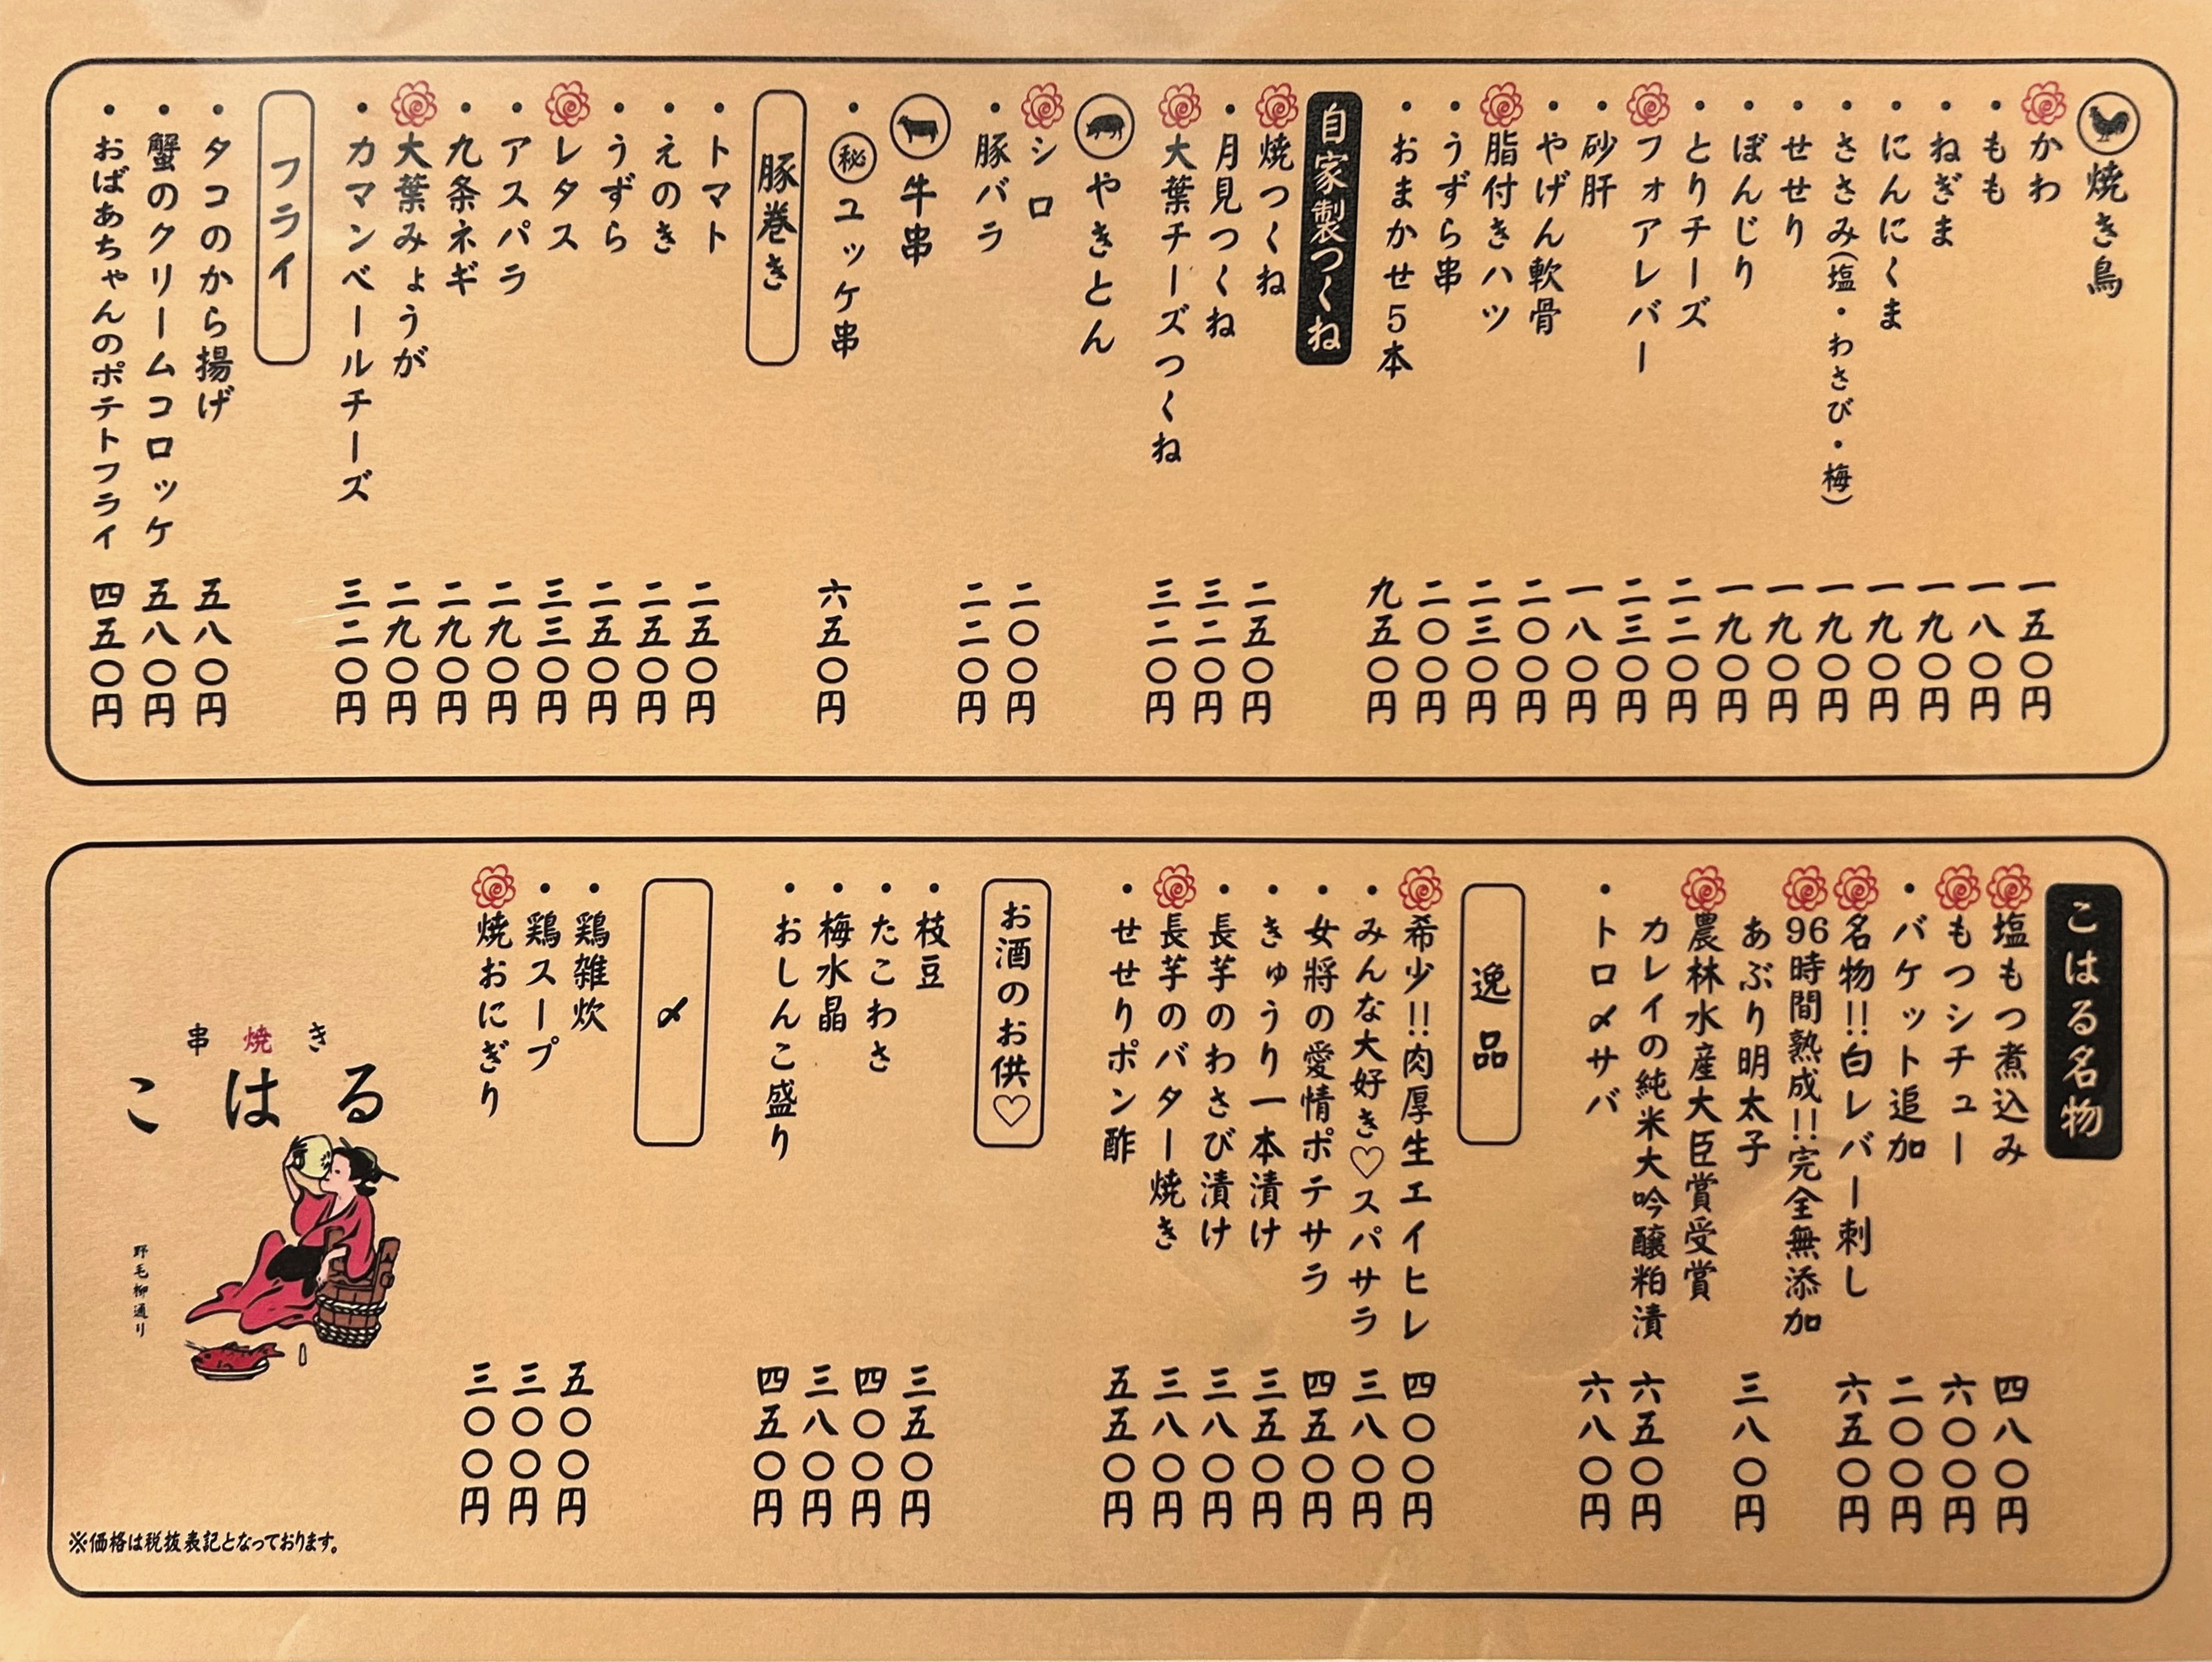 焼き鳥
かわ 一五〇円
・もも 一八〇円
・ねぎま 一九〇円
・にんにくま 一九〇円
・ささみ(塩・わさび・梅) 一九〇円
・せせり 一九〇円
・ぼんじり 一九〇円
・とりチーズ 二二〇円
フォアレバー 二三〇円
・砂肝 一八〇円
・やげん軟骨 二〇〇円
脂付きハツ 二三〇円
・うずら串 二〇〇円
・おまかせ5本 九五〇円
自家製つくね
焼つくね 二五〇円
・月見つくね 三二〇円
大葉チーズつくね 三二〇円
やきとん
シロ 二〇〇円
・豚バラ 二二〇円
牛串
・㊙ユッケ串 六五〇円
豚巻き
・トマト 二五〇円
・えのき 二五〇円
・うずら 二五〇円
レタス 三三〇円
・アスパラ 二九〇円
・九条ネギ 二九〇円
大葉みょうが 二九〇円
・カマンベールチーズ 三二〇円
フライ
・タコのから揚げ 五八〇円
・蟹のクリームコロッケ 五八〇円
・おばあちゃんのポテトフライ 四五〇円
こはる名物
塩もつ煮込み 四八〇円
もつシチュー 六〇〇円
・バケット追加 二〇〇円
名物!!白レバー刺し 六五〇円
96時間熟成!!完全無添加
あぶり明太子 三八〇円
農林水産大臣賞受賞
カレイの純米大吟醸粕漬 六五〇円
・トロ〆サバ 六八〇円
逸品
希少!!肉厚生エイヒレ 四〇〇円
・みんな大好き♡スパサラ 三八〇円
・女将の愛情ポテサラ 四五〇円
・きゅうり一本漬け 三五〇円
・長芋のわさび漬け 三八〇円
長芋のバター焼き 三八〇円
・せせりポン酢 五五〇円
お酒のお供♡
・枝豆 三五〇円
・たこわさ 四〇〇円
・梅水晶 三八〇円
・おしんこ盛り 四五〇円
〆
・鶏雑炊 五〇〇円
・鶏スープ 三〇〇円
焼おにぎり 三〇〇円
串焼き
こはる
野毛柳通り
※価格は税抜表記となっております。